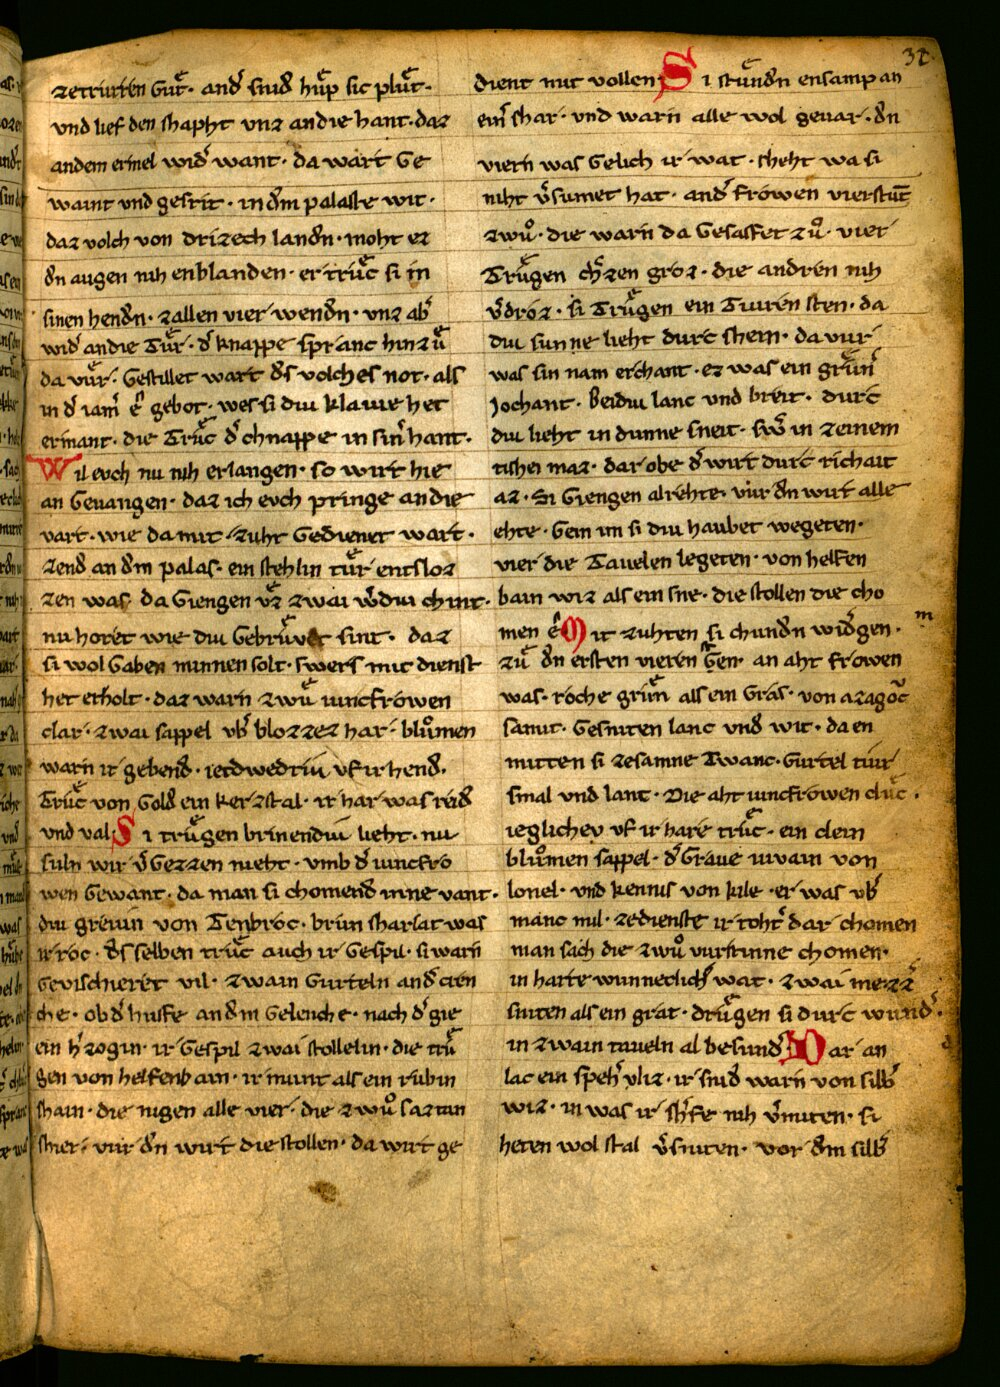 37
zetriuten Guͤt. and͛ snid͛ huͤp sic pluͤt.
vnd lief den shapht vnz an die hant. daz
an dem ermel wid͛ want. da wart Ge
waint vnd gesrit. in d͛m palaste wit.
daz volch von drizech land͛n. moht ez
d͛n augen nih enblanden. er truͤc si in
sinen hend͛n. zallen vier wend͛n. vnz ab͛
wid͛ an die Tuͤr. d͛ knappe spranc hinzuͤ
da vuͤr. Gestillet wart d͛s volches not. als
in d͛ iam͛ ê gebot. wes si diu klawe het
ermant. die Truͤc d͛ chnappe in sin͛ hant.
Wil evch nu nih erlangen. so wirt hie
an Gevangen. daz ich evch pringe an die
vart. wie da mit zuht Gedienet wart.
zend͛ an d͛m palas. ein stehlin tuͤr entsloz
zen was. da Giengen vͤz zwai w͛diu chint.
nu horet wie diu Gebruͤvet sint. daz
si wol Gaben minnen solt. swers mit dienst
het erholt. daz warn zwuͤ iuncfrowen
clar. zwai sappel vb͛ blozzez har. bluͦmen
warn ir gebend͛. ietdwedriu vf ir hend͛.
Truͤc von Gold͛ ein kerzstal. ir har was reid͛
vnd val Si truͤgen brinendiu lieht. nu
suln wir v͛Gezzen nieht. vmb d͛ iuncfro
wen Gewant. da man si chomend͛ inne vant.
diu grevin von Tenbroc. brun sharlat was
ir roc. d͛s selben truͤc auch ir Gespil. si warn
Gevischieret vil. zwain Gurteln and͛ cren
che. ob d͛ huffe an d͛m Gelenche. nach d͛ gie
ein h͛zogin. ir Gespil zwai stollelin. die truͤ
gen von helfenbain. ir munt als ein rubin
shain. die nigen alle vier. die zwuͦ sazten
shier. vur d͛n wirt die stollen. da wirt ge
dient mit vollen Si stuͤnd͛n ensamp an
ein͛ shar. vnd warn alle wol gevar. d͛n
viern was Gelich ir wat. sheht wa si
niht v͛sumet hat. and͛ frowen vierstūt
zwuͦ. die warn da Gesaffet zuͦ. vier
Truͤgen ch͛zen groz. die andren nih
v͛droz. si Truͤgen ein Tiuren sten. da
diu sunne lieht durc shern. da vur
was sin nam erchant. ez was ein gruͤn͛
Jochant. Beidiu lanc vnd breit. durc
diu lieht in dunne sneit. sw͛ in zeinem
tishei maz. dar obe d͛ wirt durc richait
az. Si Giengen alrehte. vur d͛n wirt alle
ehte. Gein im si diu haubet wegeten.
vier die Tauelen legeten. von helfen
bain wiz als ein sne. die stollen die cho
men ê Mit zuhten si chund͛n wid͛gen.
zuͤ d͛n ersten vieren sten. an aht frowen
was. roche gruͤn als ein Gras. von azagoͮc
samit. Gesniten lanc vnd wit. da en
mitten si zesamne Twanc. Gurtel tiur
smal vnd lant. Die aht iuncfrowen cluͤc.
ieglichev vf ir hare truͤc. ein clein
bluͦmen sappel. d͛ Grave iuvain von
lonel. vnd kennis von kile. er was vb͛
manc mil. zedienste ir toht͛ dar chomen
man sach die zwuͦ vurstinne chomen.
in harte wunneclich͛ wat. zwai mezz͛
sniten als ein grat. druͤgen si durc wund͛.
in zwain taueln al besund͛ Dar an
lac ein speh͛ vliz. ir snid͛ warn von silb͛
wiz. in was ir sh͛fe nih v͛miten. si
heten wol stal v͛sniten. vor d͛m silb͛